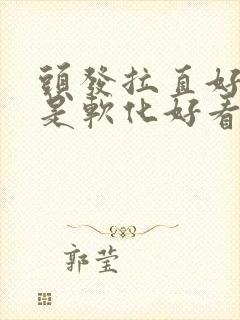 頭發拉直好
是軟化好看
郭莹